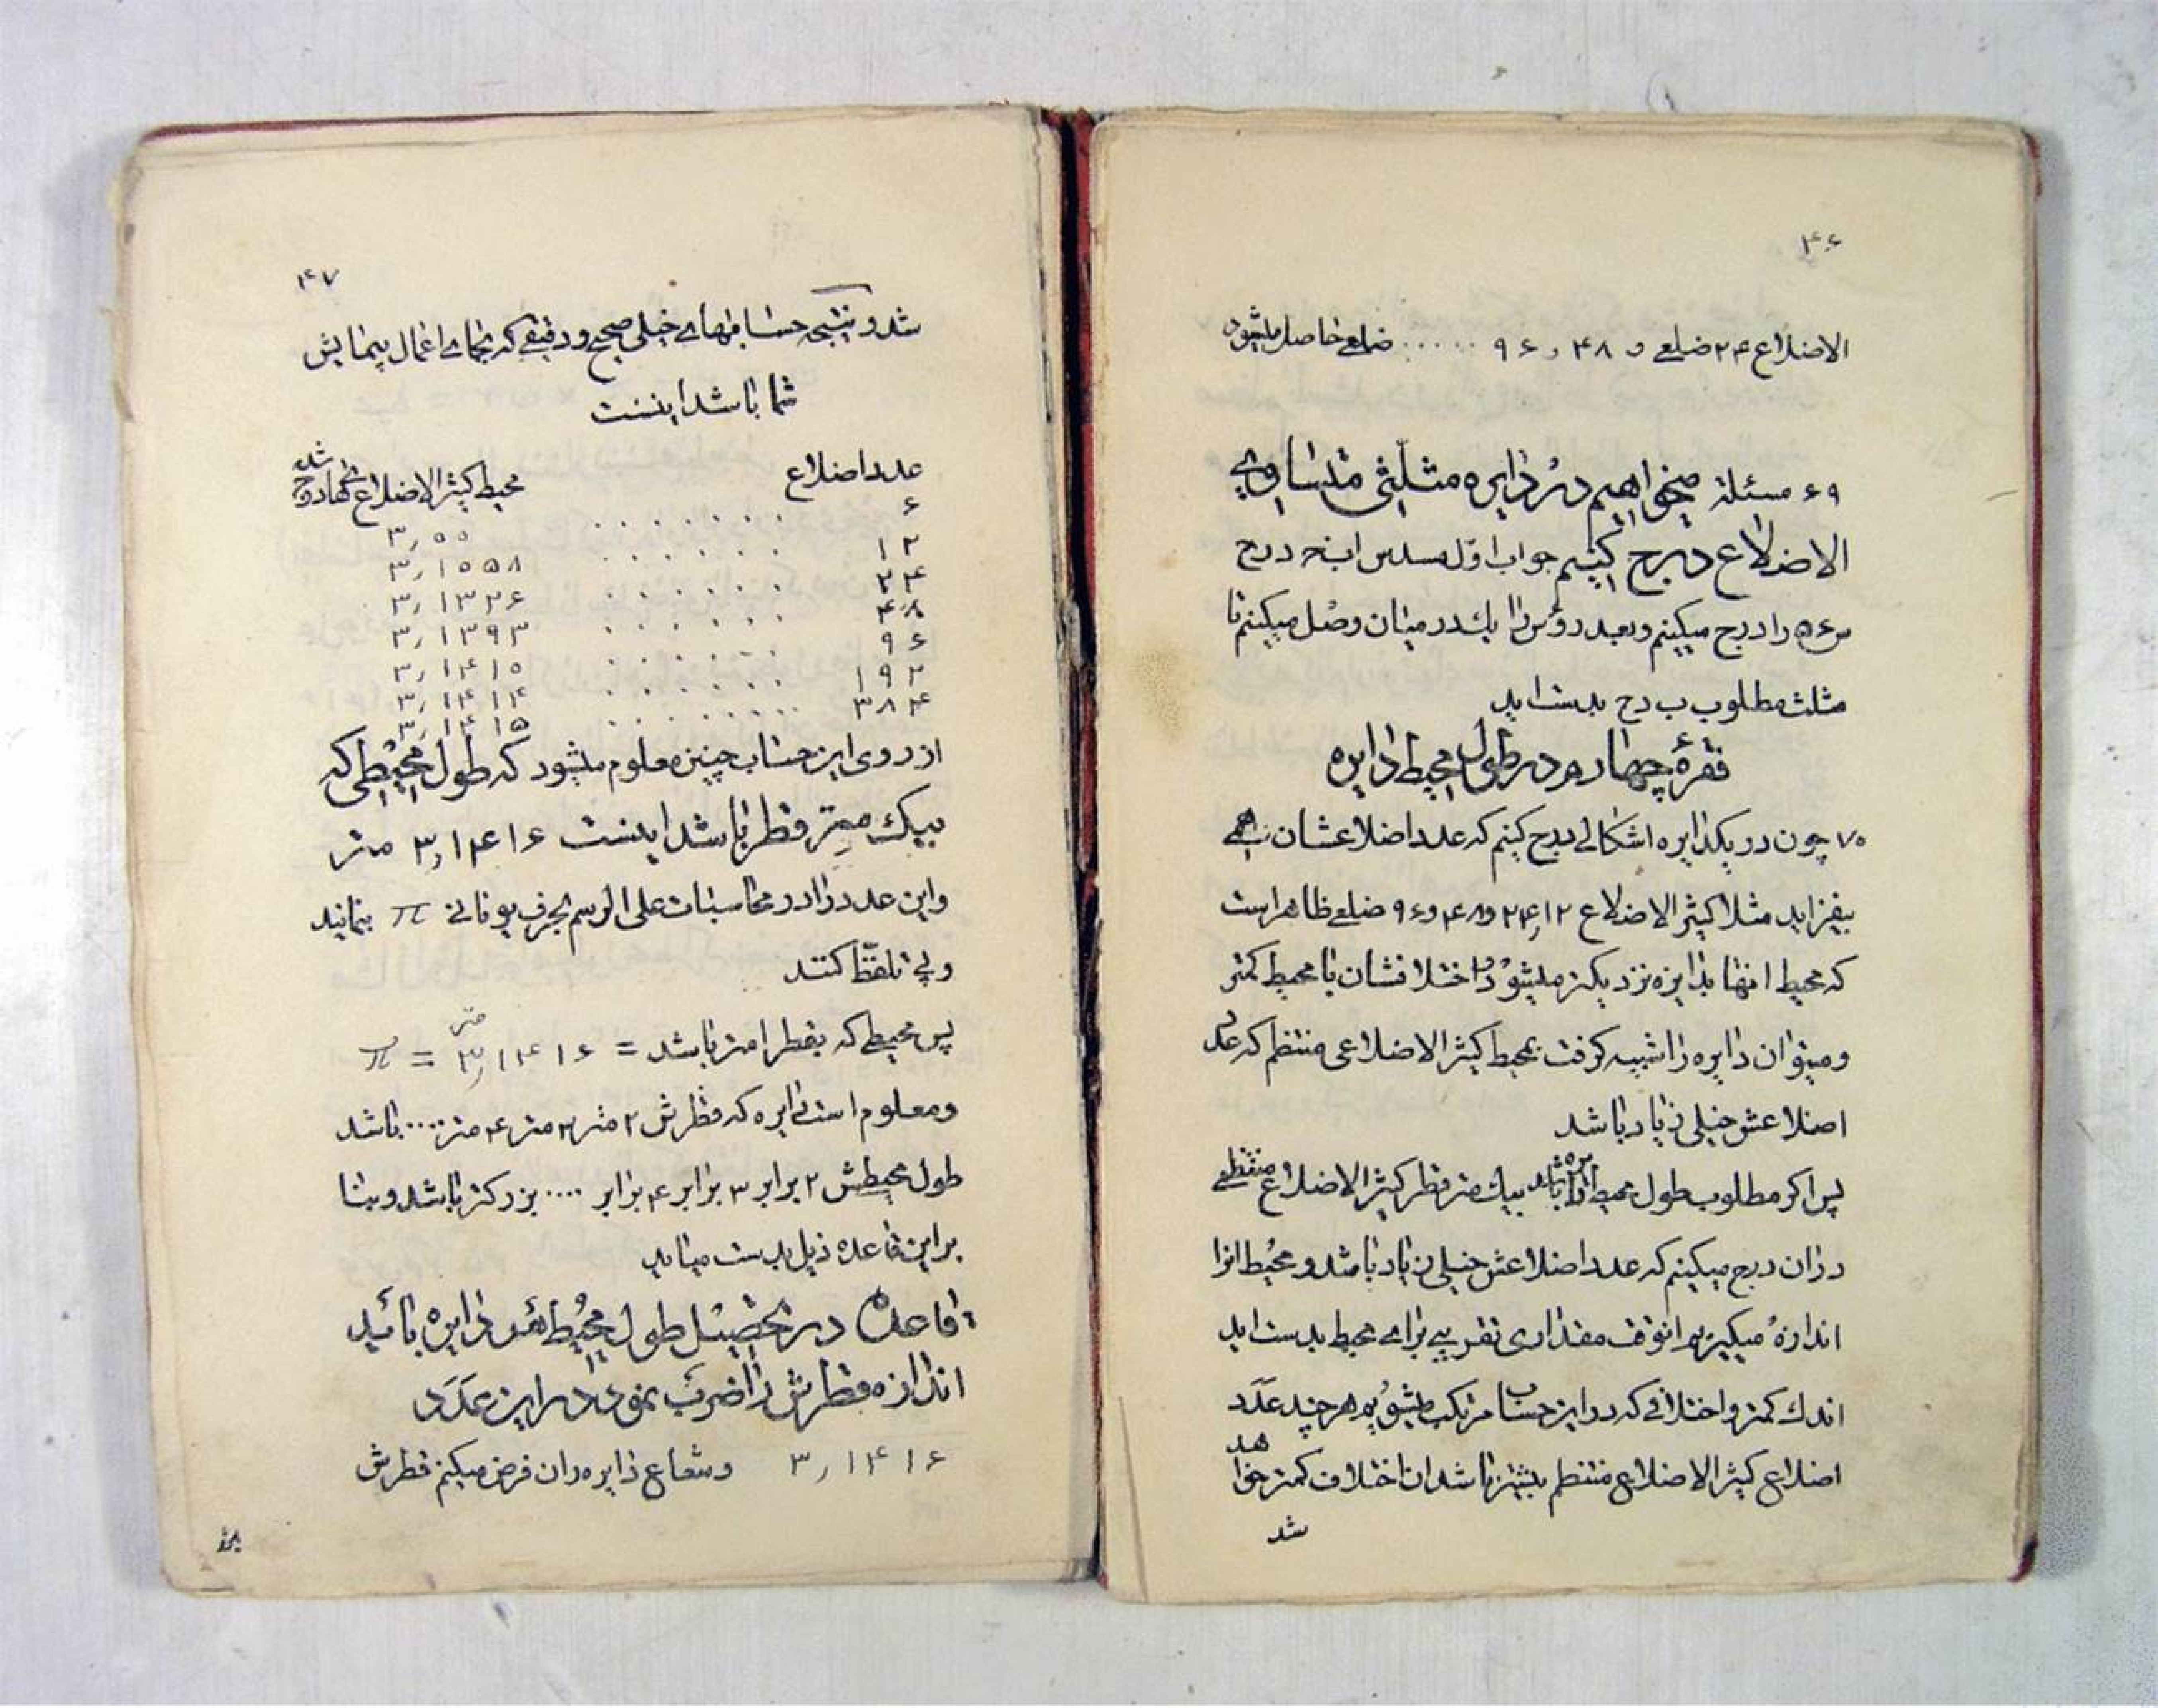 ۴۶
الاضلاع ۲۴ ضلعی و ۴۸ و ۹۶ ..... ضلعی حاصل میشود
۶۹ مسئله میخواهیم در دایره مثلثی متساوی
الاضلاع درج کنیم جواب اول مسدس ا ب ج د ر ح
را درج میکنیم و بعد رؤس را یک در میان وصل میکنیم تا
مثلث مطلوب ب د ح بدست اید
فقرهٔ چهارم در طول محیط دایره
۷۰ چون در یکدایره اشکالی درج کنیم که عدد اضلاعشان
بیفزاید مثلا کثیر الاضلاع ۱۲ و ۲۴ و ۴۸ و ۹۶ ضلعی ظاهر است
که محیط انها بدایره نزدیکتر میشود و اختلافشان با محیط کمتر
و میتوان دایره را شبیه کرفت بمحیط کثیر الاضلاعی منتظم که عدد
اضلاعش خیلی زیاد باشد
پس اکر مطلوب طول محیط دایره باشد بیک متر قطر کثیر الاضلاع منتظمی
دران درج میکینم که عدد اضلاعش خیلی زیاد باشد و محیط انرا
اندازه میکیریم انوقت مقداری تقریبی برای محیط بدست اید
اندک کمتر و اختلافی که در این حساب مرتکب میشویم هر چند عدد
اضلاع کثیر الاضلاع منتظم بیشتر باشد ان اختلاف کمتر خواهد
شد
۴۷
شد و نتیجه حسابهای خیلی صحیح و دقیقی که بجای اعمال پیمایش
شما باشد اینست
عدد اضلاع محیط کثیر الاضلاع محاط درج شده
۶ ....... ۳٫۰۰
۱۲ ...... ۳٫۱۰۵۸
۲۴ ...... ۳٫۱۳۲۶
۴۸ ...... ۳٫۱۳۹۳
۹۶ ...... ۳٫۱۴۱۰
۱۹۲ ...... ۳٫۱۴۱۴
۳۸۴ ........ ۳٫۱۴۱۵
از روی این حساب چنین معلوم میشود که طول محیطی که
بیک متر قطر باشد اینست ۳٫۱۴۱۶ متر
و این عدد را در محاسبات علی الرسم بحرف یونانی π بنمایند
و پی تلفظ کنند
پس محیطی که بقطر ا متر باشد = ۳٫۱۴۱۶ متر = π
و معلوم است دایره که قطرش ۲ متر ۳ متر ۴ متر .... باشد
طول محیطش ۲ برابر ۳ برابر ۴ برابر .... بزرکتر باشد و بنا
براین قاعده ذیل بدست میاید
قاعده در تحصیل طول محیط هر دایره باید
اندازه قطرش را ضرب نمود در این عدد
۳٫۱۴۱۶ و شعاع دایره را ن فرض میکنم قطرش